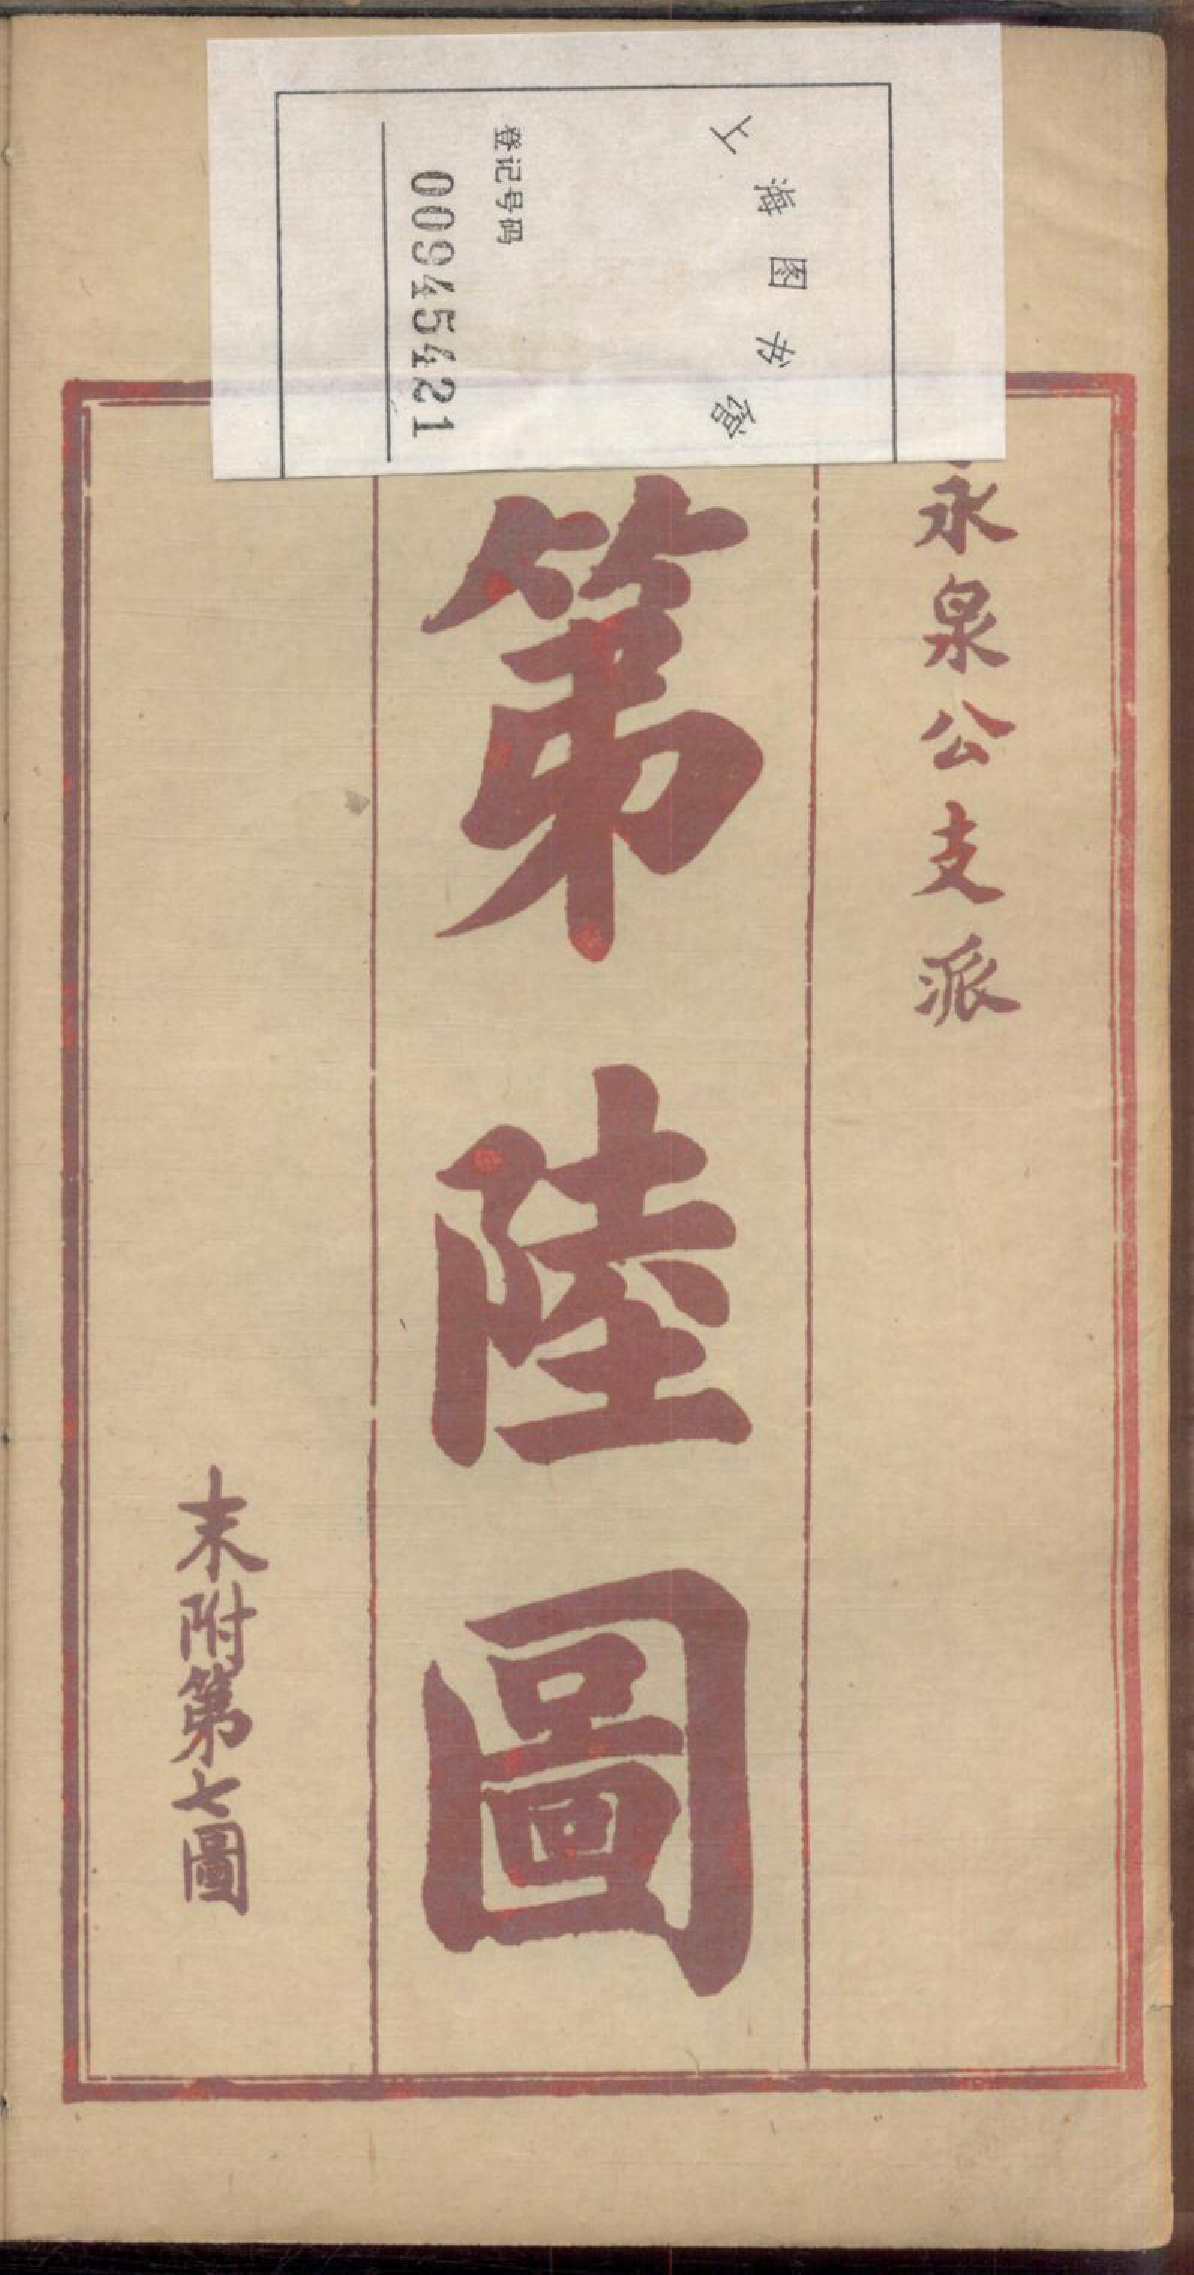 上海图书馆
登记号码
00945421
永泉公支派
第陸圖
末附第七圖